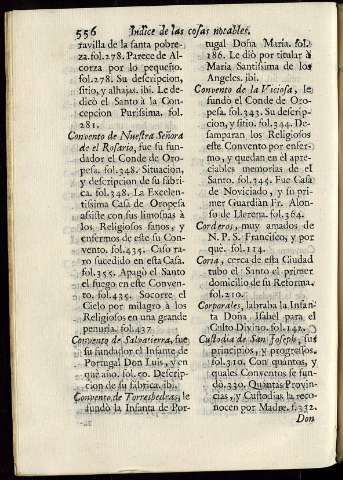 556 Indice de las cosas notables.
ravilla de la santa pobre-
za. fol. 278. Parece de Al-
corza por lo pequeño.
fol. 278. Su descripcion,
sitio, y alhajas. ibi. Le de-
dicò el Santo à la Con-
cepcion Purissima. fol.
281.
Convento de Nuestra Señora
de el Rosario, fue su fun-
dador el Conde de Oro-
pesa. fol. 348. Situacion,
y descripcion de su fabri-
ca. fol. 348. La Excelen-
tissima Casa de Oropesa
assiste con sus limosnas à
los Religiosos sanos, y
enfermos de este su Con-
vento. fol. 435. Caso ra-
ro sucedido en esta Casa.
fol. 355. Apagò el Santo
el fuego en este Conven-
to. fol. 435. Socorre el
Cielo por milagro à los
Religiosos en una grande
penuria. fol. 437
Convento de Salvatierra, fue
su fundador el Infante de
Portugal Don Luis, y en
què año. fol. 50. Descrip-
cion de su fabrica. ibi.
Convento de Torresbedras, le
fundò la Infanta de Por-
tugal Doña Maria. fol.
186. Le diò por titular à
Maria Santissima de los
Angeles. ibi.
Convento de la Viciosa, le
fundò el Conde de Oro-
pesa. fol. 343. Su descrip-
cion, y sitio. fol. 344. De-
samparan los Religiosos
este Convento por enfer-
mo, y quedan en èl apre-
ciables memorias de el
Santo. fol. 344. Fue Casa
de Noviciado, y su pri-
mer Guardian Fr. Alon-
so de Llerena. fol. 364.
Corderos, muy amados de
N. P. S. Francisco, y por
què. fol. 114.
Coria, cerca de esta Ciudad
tubo el Santo el primer
domicilio de su Reforma.
fol. 210.
Corporales, labraba la Infan-
ta Doña Isabel para el
Culto Divino. fol. 142.
Custodia de San Joseph, sus
principios, y progressos.
fol. 310. Con quantos, y
quales Conventos se fun-
dò. 330. Quantas Provin-
cias, y Custodias la reco-
nocen por Madre. f. 332.
Don